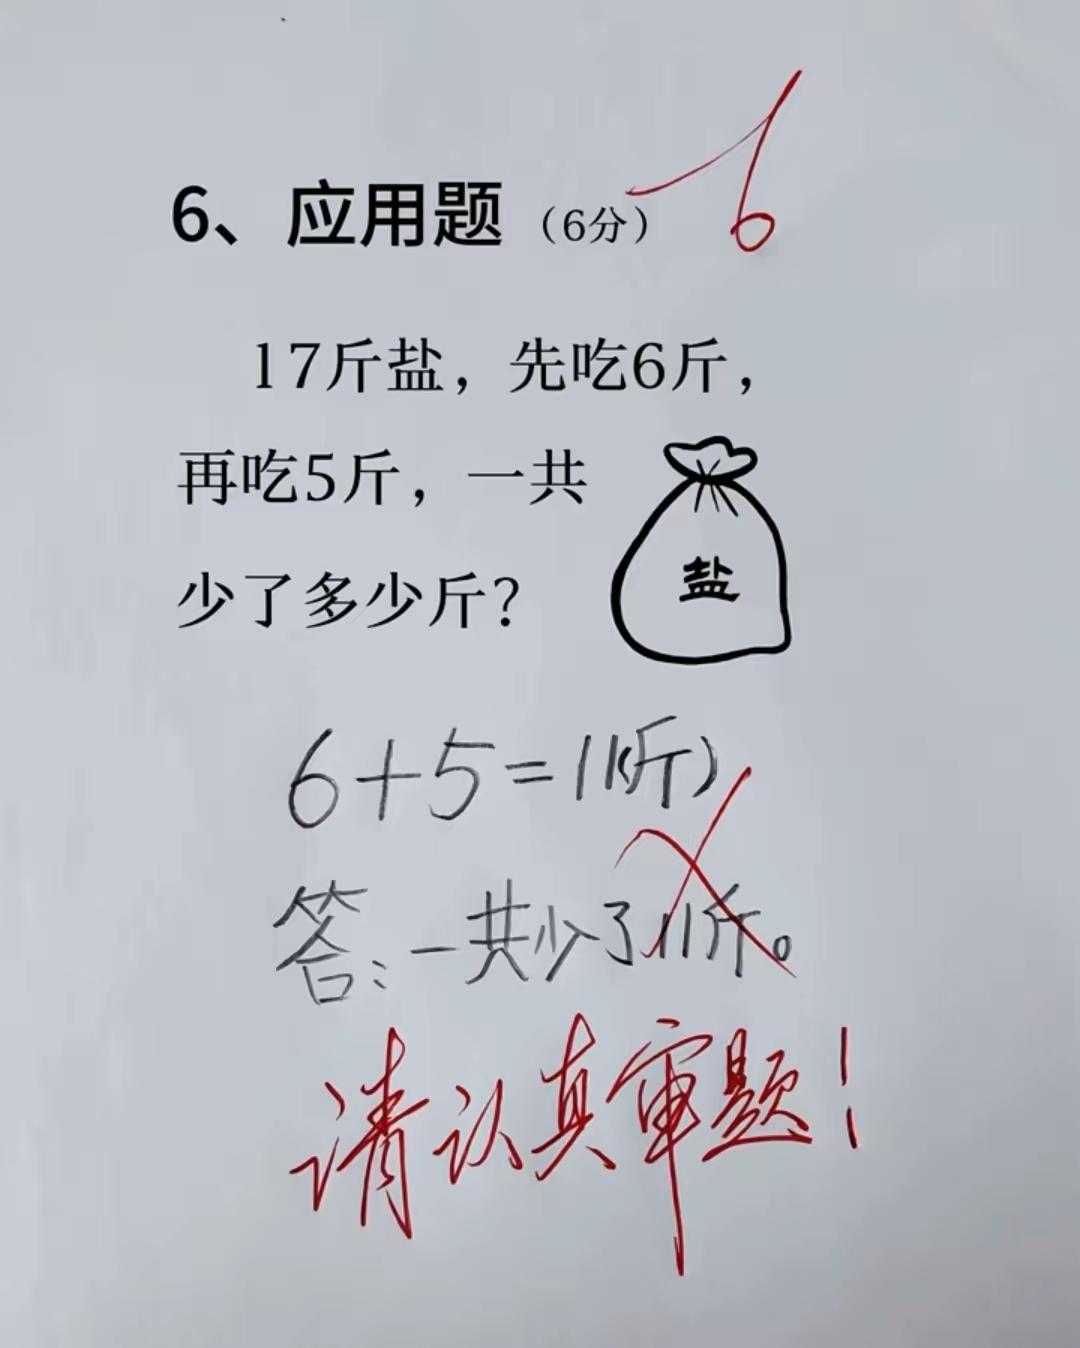 6、应用题（6分） -6
17斤盐，先吃6斤，
再吃5斤，一共
少了多少斤？
盐
6+5=11(斤)
答：一共少了11斤。
请认真审题！